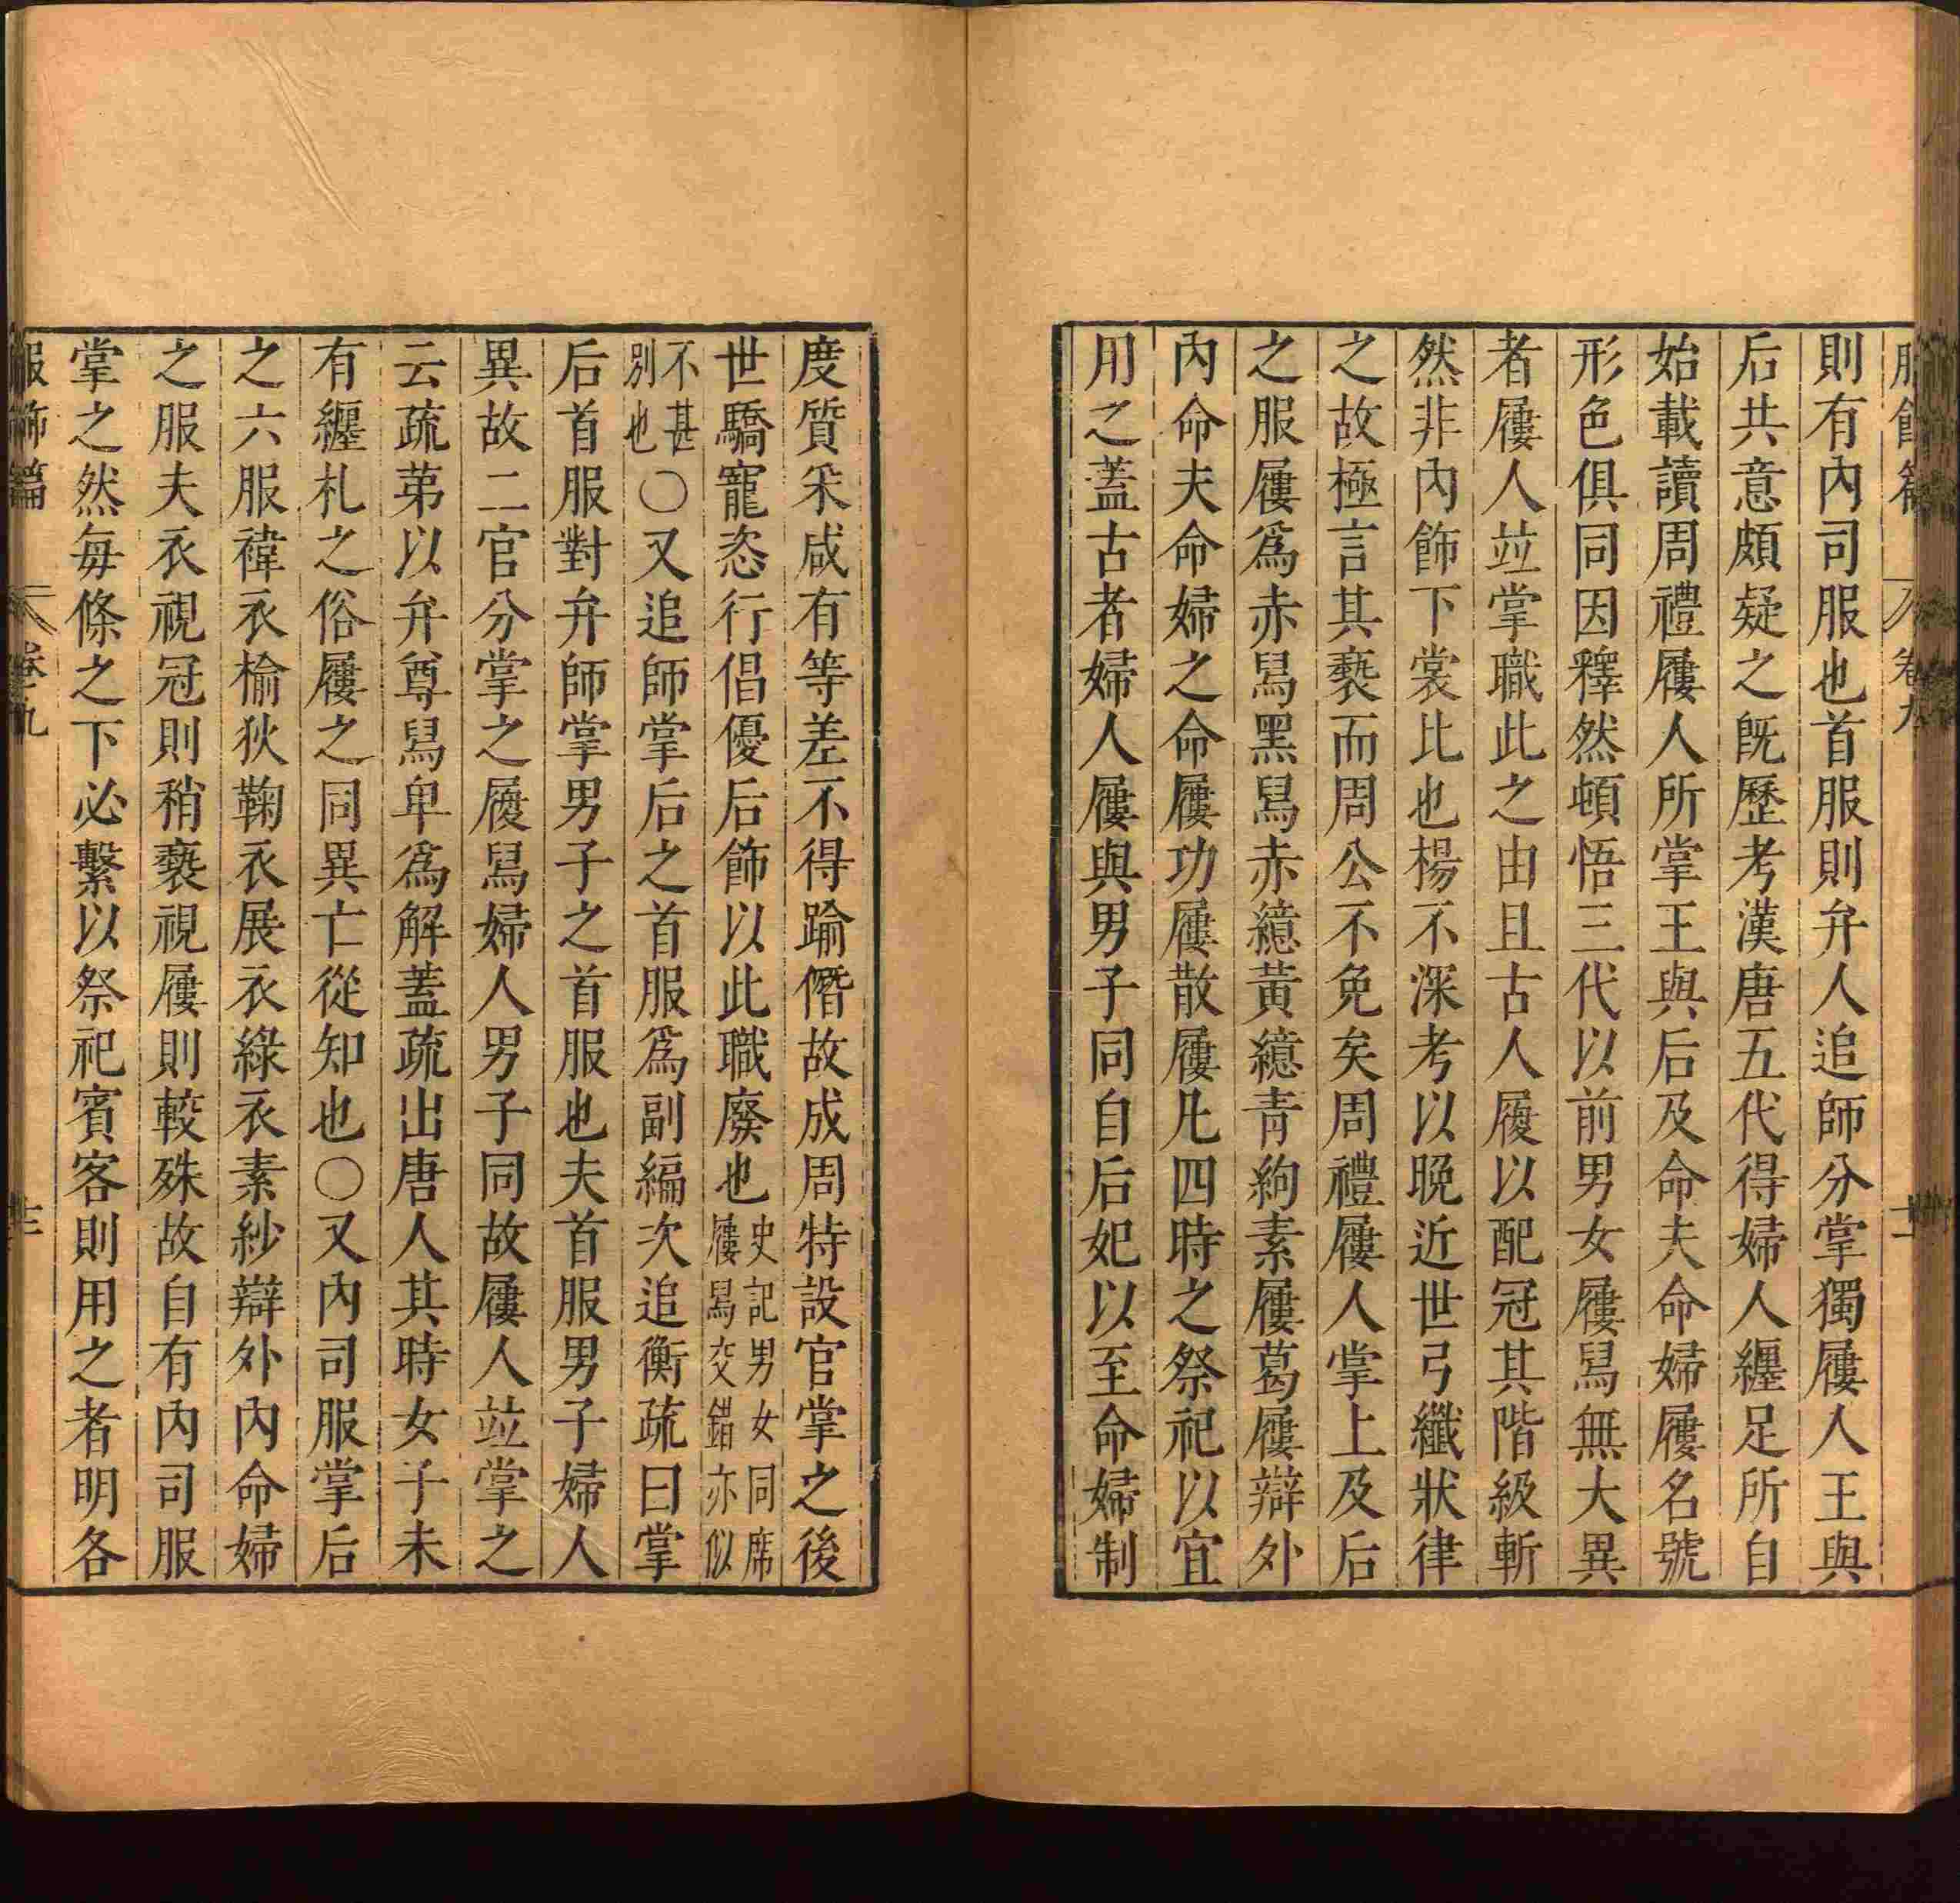 服飾篇 卷九
則有內司服也首服則弁人追師分掌獨屨人王與
后共意頗疑之旣歷考漢唐五代得婦人纏足所自
始載讀周禮屨人所掌王與后及命夫命婦屨名號
形色俱同因釋然頓悟三代以前男女屨舄無大異
者屨人竝掌職此之由且古人履以配冠其階級斬
然非內飾下裳比也楊不深考以晚近世弓纖狀律
之故極言其褻而周公不免矣周禮屨人掌上及后
之服屨爲赤舄黑舄赤繶黃繶靑絇素屨葛屨辯外
內命夫命婦之命屨功屨散屨凡四時之祭祀以宜
用之蓋古者婦人屨與男子同自后妃以至命婦制
度質采咸有等差不得踰僭故成周特設官掌之後
世驕寵恣行倡優后飾以此職廢也史記男女同席
屨舄交錯亦似
不甚
別也○又追師掌后之首服爲副編次追衡疏曰掌
后首服對弁師掌男子之首服也夫首服男子婦人
異故二官分掌之履舄婦人男子同故屨人竝掌之
云疏苐以弁尊舄卑爲解蓋疏出唐人其時女子未
有纏札之俗屨之同異亡從知也○又內司服掌后
之六服褘衣褕狄鞠衣展衣綠衣素紗辯外內命婦
之服夫衣視冠則稍褻視屨則較殊故自有內司服
掌之然每條之下必繫以祭祀賓客則用之者明各
服飾篇 卷九